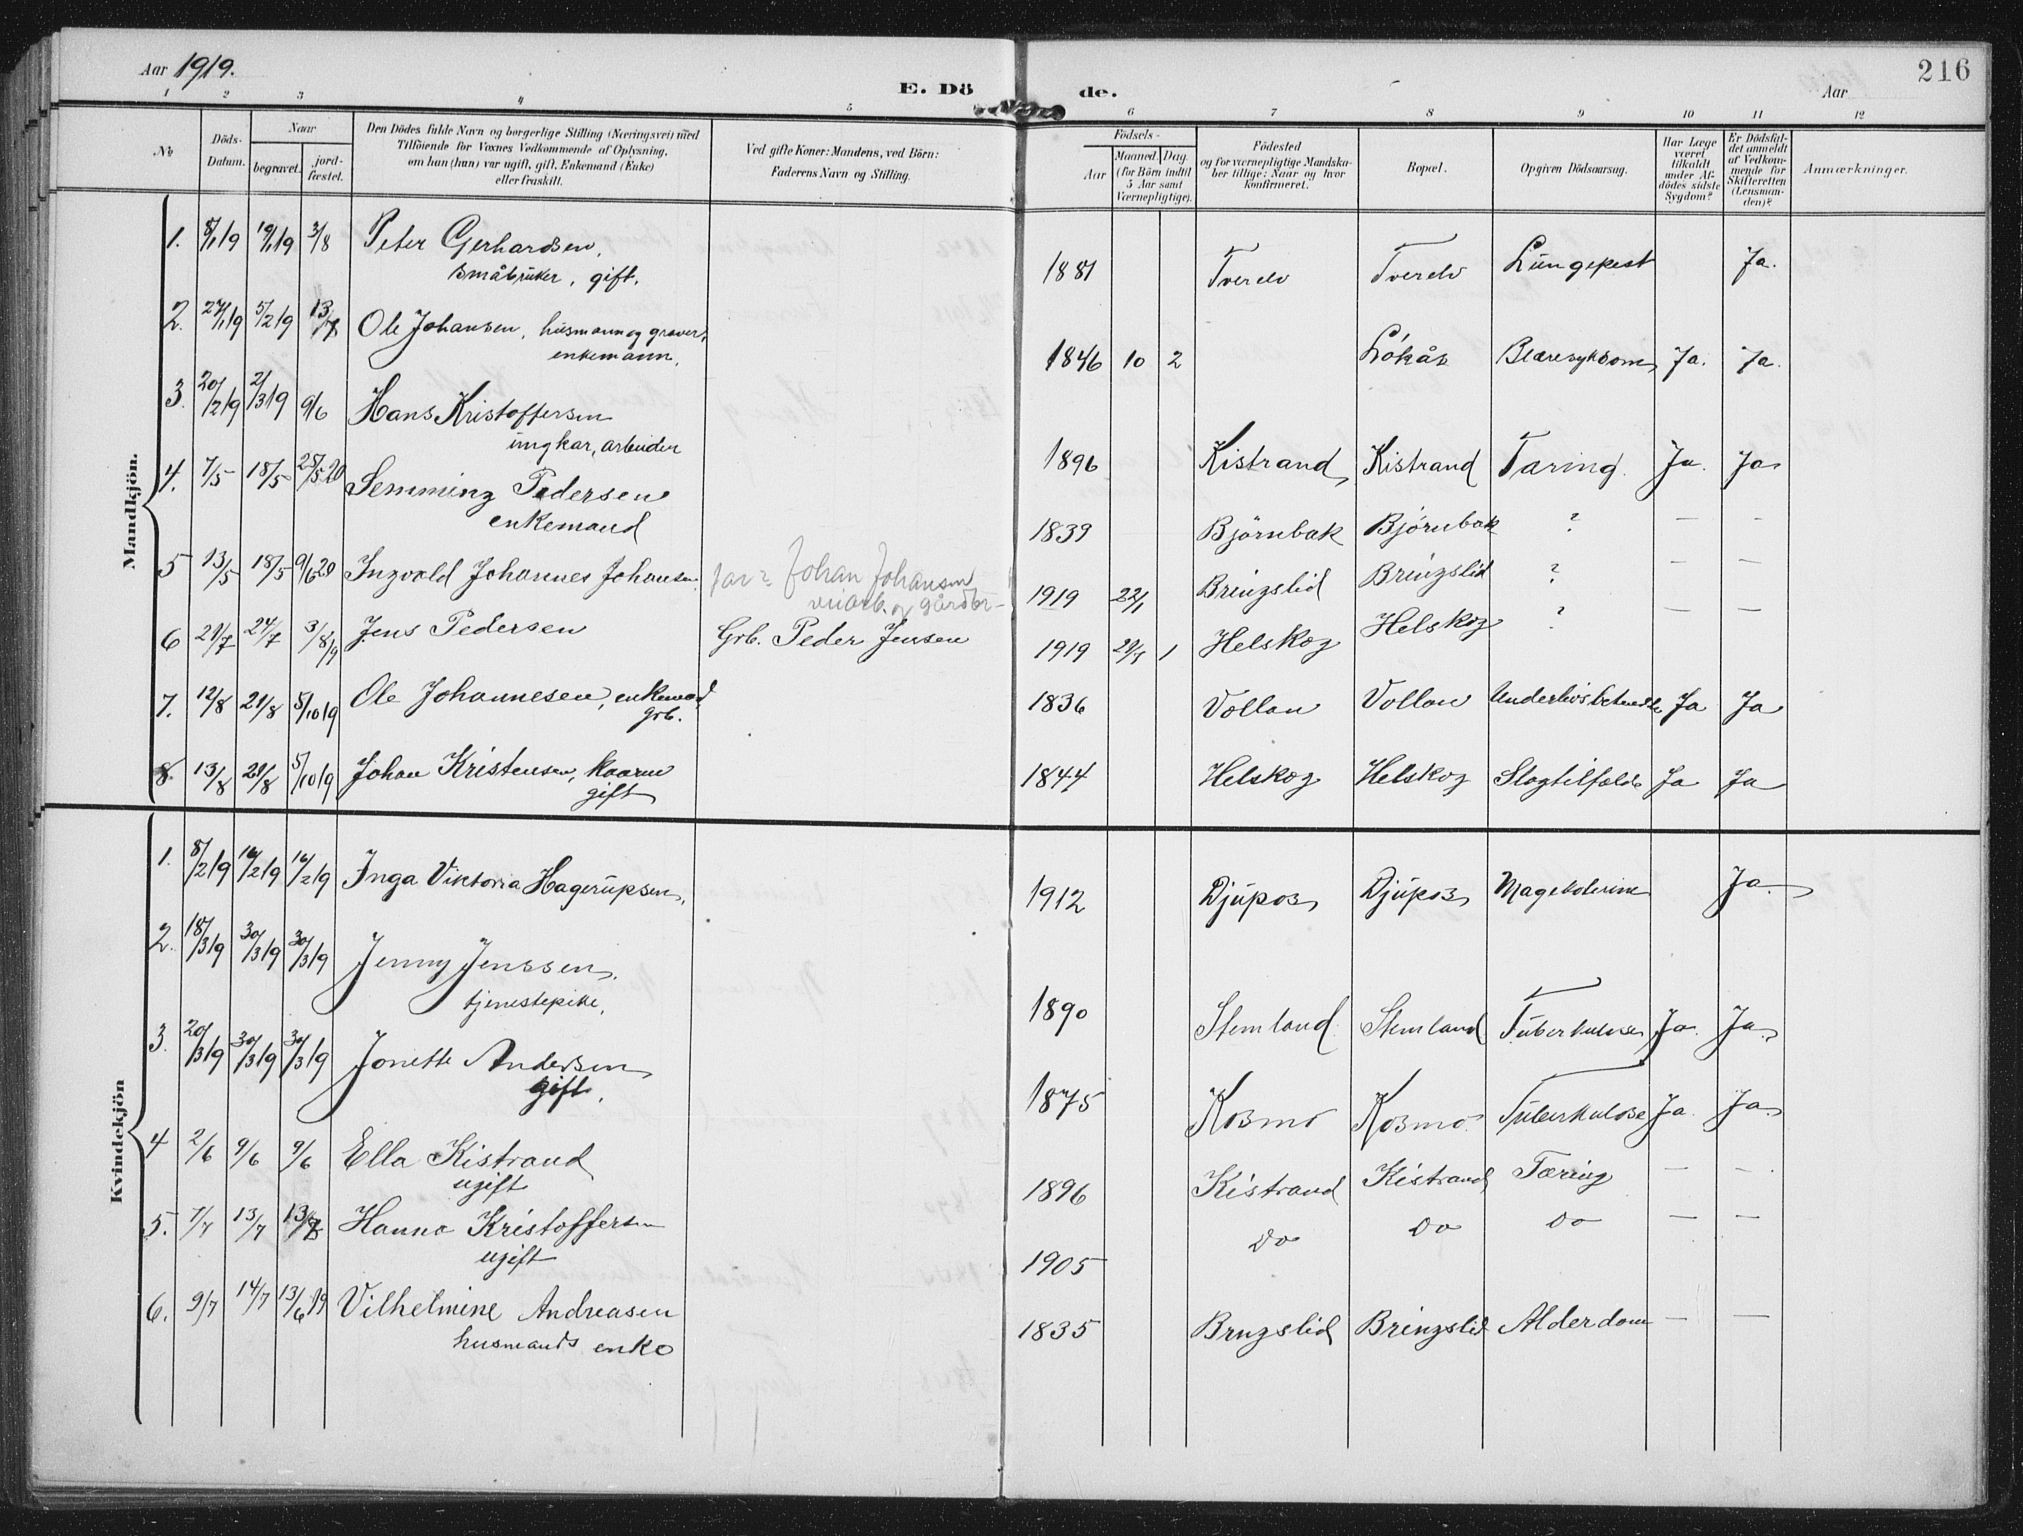 Aar 1919.
E. Dö de.
Aar
216
1 2 3 4 5 6 7 8 9 10 11 12
No
Döds-Datum.
Naar
begravet.
jord-fæstet.
Den Dödes fulde Navn og borgerlige Stilling (Næringsvei) med
Tilföiende for Voxnes Vedkommende af Oplysning,
om han (hun) var ugift, gift, Enkemand (Enke)
eller fraskilt.
Ved gifte Koner: Mandens, ved Börn:
Faderens Navn og Stilling.
Födsels-
Aar
Maaned. Dag.
(for Börn indtil
5 Aar samt
Værnepligtige).
Födested
og for værnepligtige Mandska-
ber tillige: Naar og hvor
konfirmeret.
Bopæl.
Opgiven Dödsaarsag.
Har Læge
været
tilkaldt
under Af-
dödes sidste
Sygdom?
Er Dödsfal-
det anmeldt
af Vedkom-
mende for
Skifteretten
(Lensman-
den)?
Anmærkninger.
Mandkjön.
1. 8/1 19 19/1 19 3/8 Peter Gerhardsen, 1881 Tverelv Tverelv Lungepest Ja.
småbruker, gift.
2. 27/1 19 5/2 19 13/7 Ole Johansen, husmann og graver, 1846 10 2 Løkås Blæresykdom Ja. Ja.
enkemann.
3. 20/2 19 2/3 19 9/6 Hans Kristoffersen 1896 Kistrand Kistrand Tæring Ja. Ja
ungkar, arbeider
4. 7/5 18/5 25/5 20 Hemming Pedersen 1839 Björnbak Björnbak ? — —
enkemand
5 13/5 18/5 9/6 20 Ingvald Johannes Johansen far: Johan Johansen 1919 22/1 Bringslid Bringslid ? — —
veiarb. og gårdbr-
6 21/7 24/7 3/8 19 Jens Pedersen Grb. Peder Jensen 1919 1 Helskog Helskog ? — —
7. 12/8 21/8 5/10 19 Ole Johannesen, enkemand 1836 Vollan Vollan Underlivsbetendelse Ja Ja
grb.
8. 13/8 21/8 5/10 19 Johan Kristensen, kaarm 1844 Helskog Helskog Slagtilfælde Ja Ja
gift
Kvindekjön
1. 8/2 19 16/2 19 16/2 19 Inga Viktoria Hagerupsen, 1912 Djupos Djupos Magekolerine Ja.
2. 18/3 19 30/3 19 30/3 19 Jenny Jenssen, 1890 Stemland Stemland Tuberkulose Ja Ja.
tjenestepike,
3. 20/3 19 30/3 19 30/3 19 Jonette Andersen 1875 Kosmo Kosmo Tuberkulose Ja. Ja.
gift.
4 2/6 9/6 9/6 Ella Kistrand 1896 Kistrand Kistrand Tæring — —
ugift
5. 7/7 13/7 13/7 Hanna Kristoffersen 1905 do do do — —
ugift
6. 9/7 14/7 13/6 19 Vilhelmine Andreasen 1835 Bringslid Bringslid Alderdom — —
husmands enke